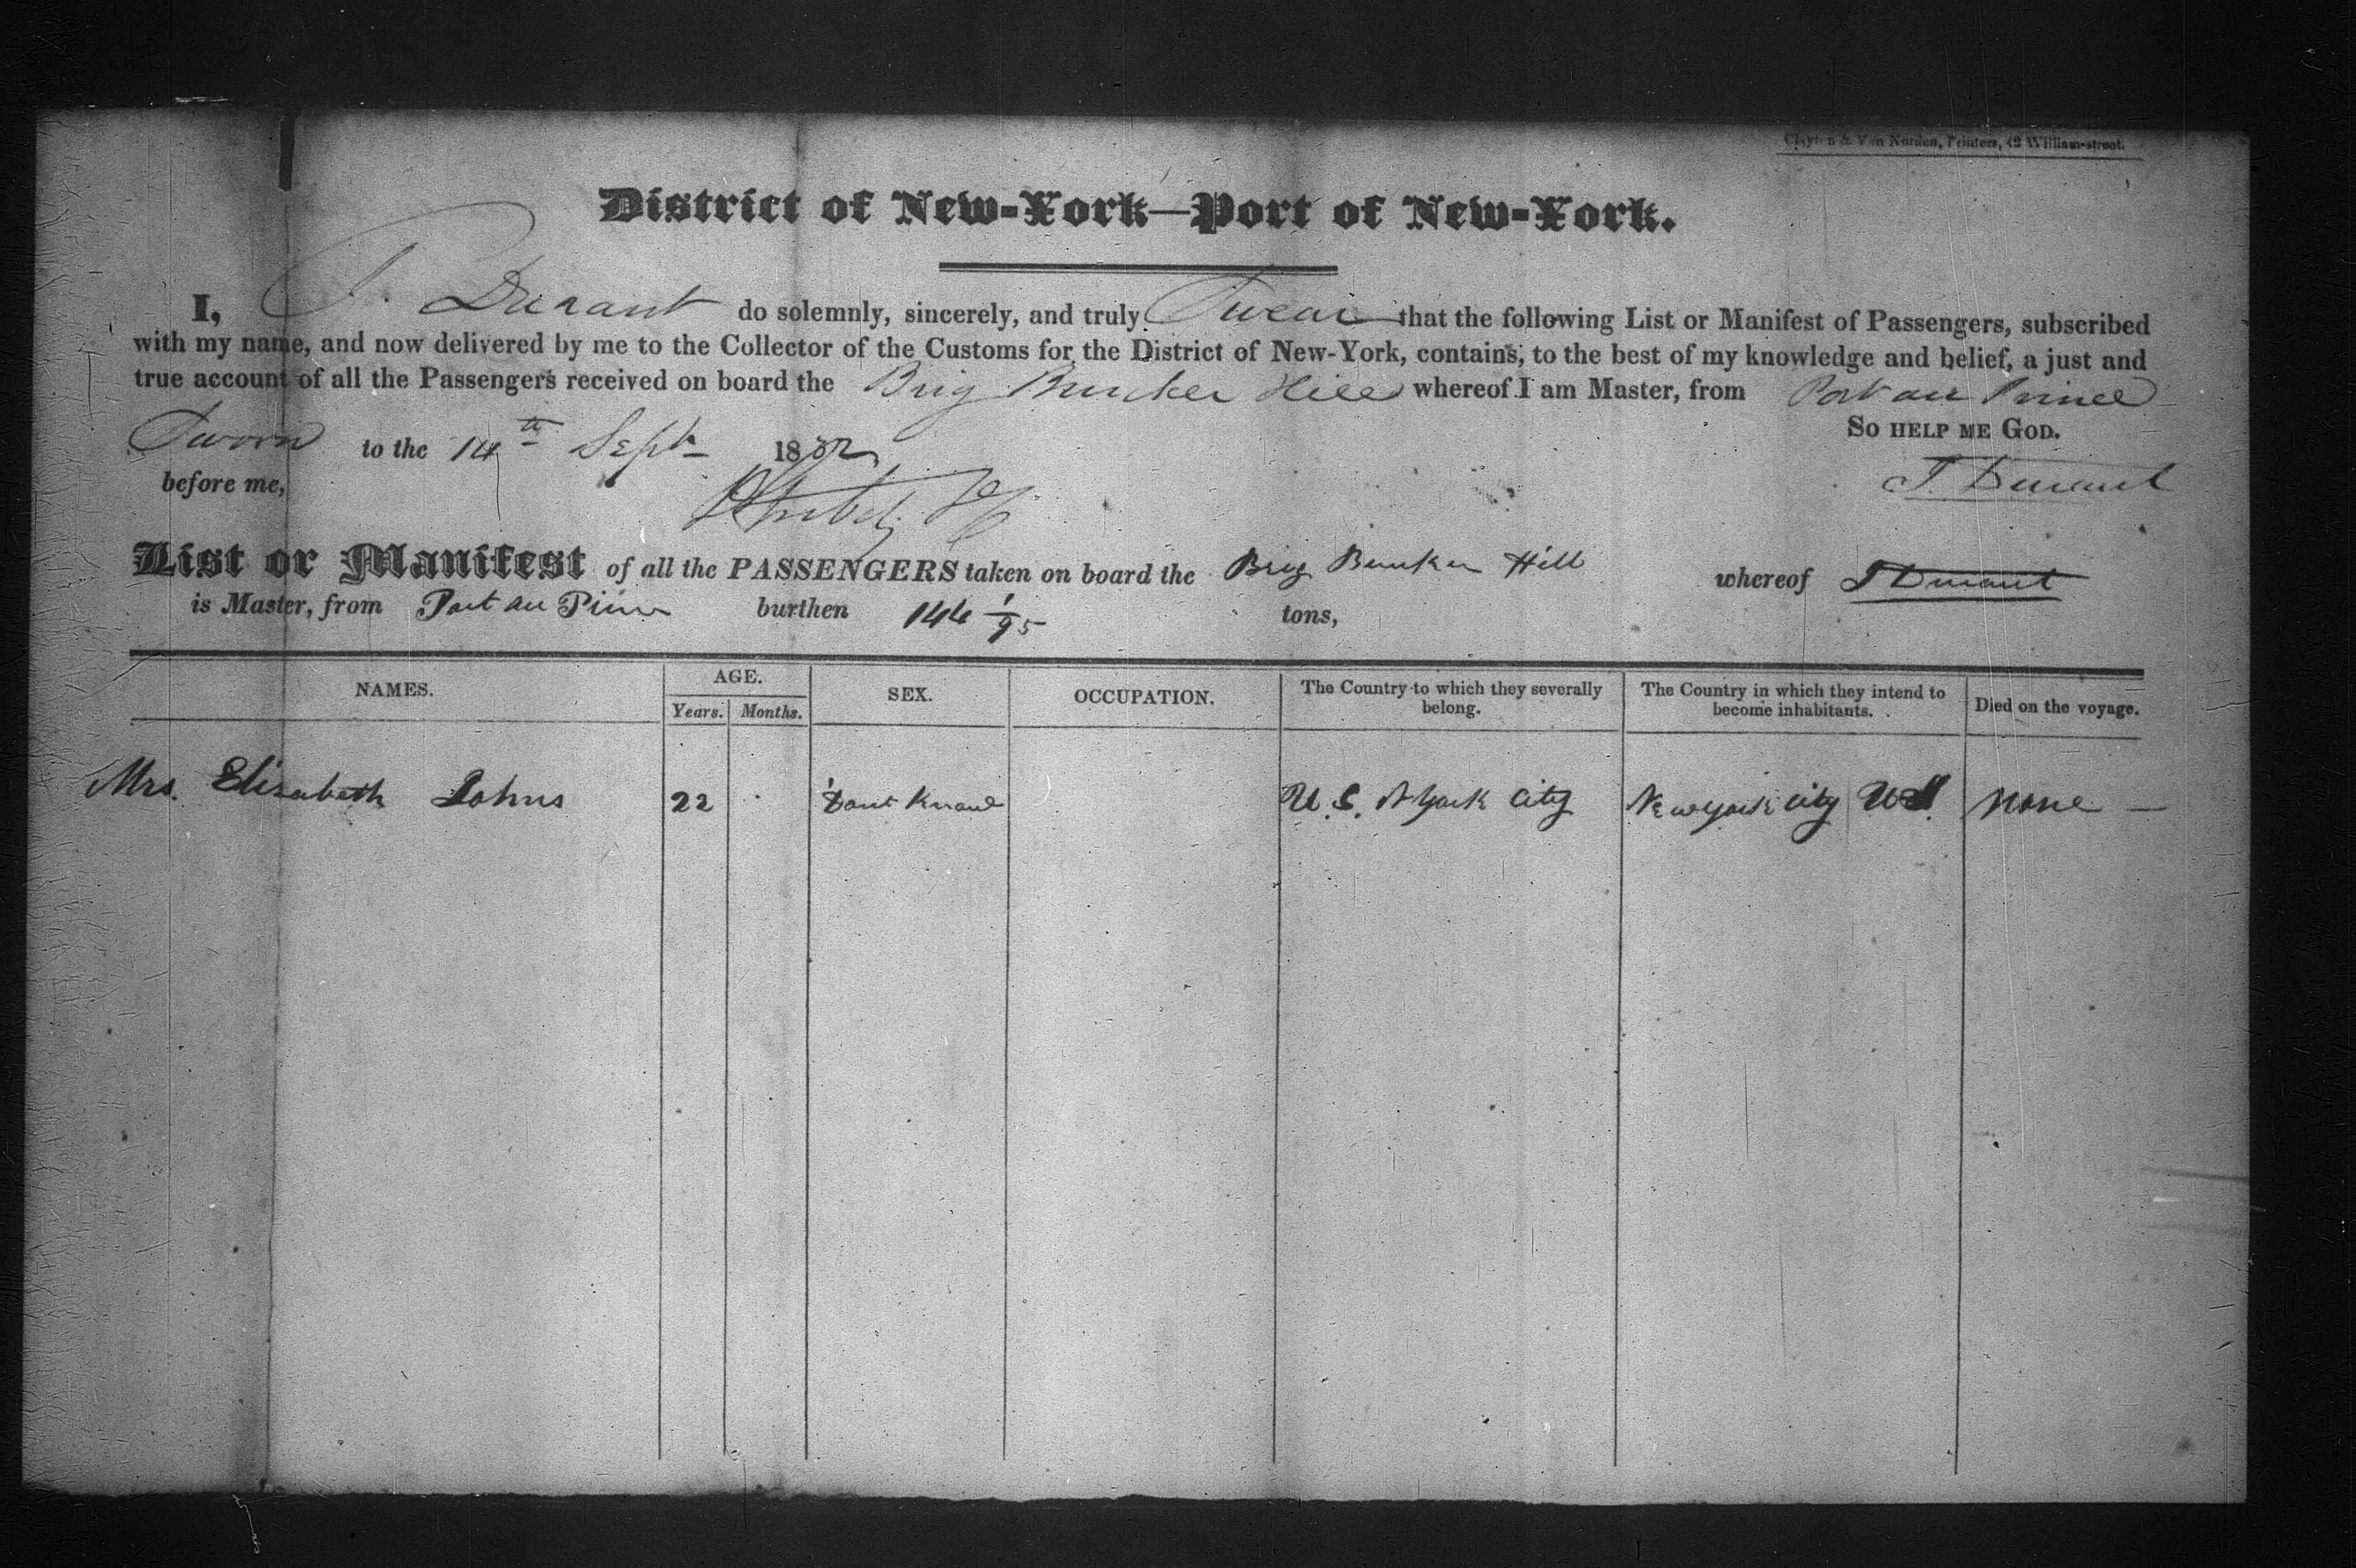 Clayton & Van Norden, Printers, 42 William-street.
District of New-York—Port of New-York.
I, J. Durant do solemnly, sincerely, and truly Swear that the following List or Manifest of Passengers, subscribed
with my name, and now delivered by me to the Collector of the Customs for the District of New-York, contains, to the best of my knowledge and belief, a just and
true account of all the Passengers received on board the Brig Bunker Hill whereof I am Master, from Port au Prince
So HELP ME GOD.
Sworn to the 14th Sept 1832
before me,
J. Durant
List or Manifest of all the PASSENGERS taken on board the Brig Bunker Hill whereof J Durant
is Master, from Port au Prince burthen 144 1/95 tons,
NAMES. AGE. SEX. OCCUPATION. The Country to which they severally belong. The Country in which they intend to become inhabitants. Died on the voyage.
Years. Months.
Mrs. Elisabeth Johns 22 Dont Know U.S. N York City New york city US. none —